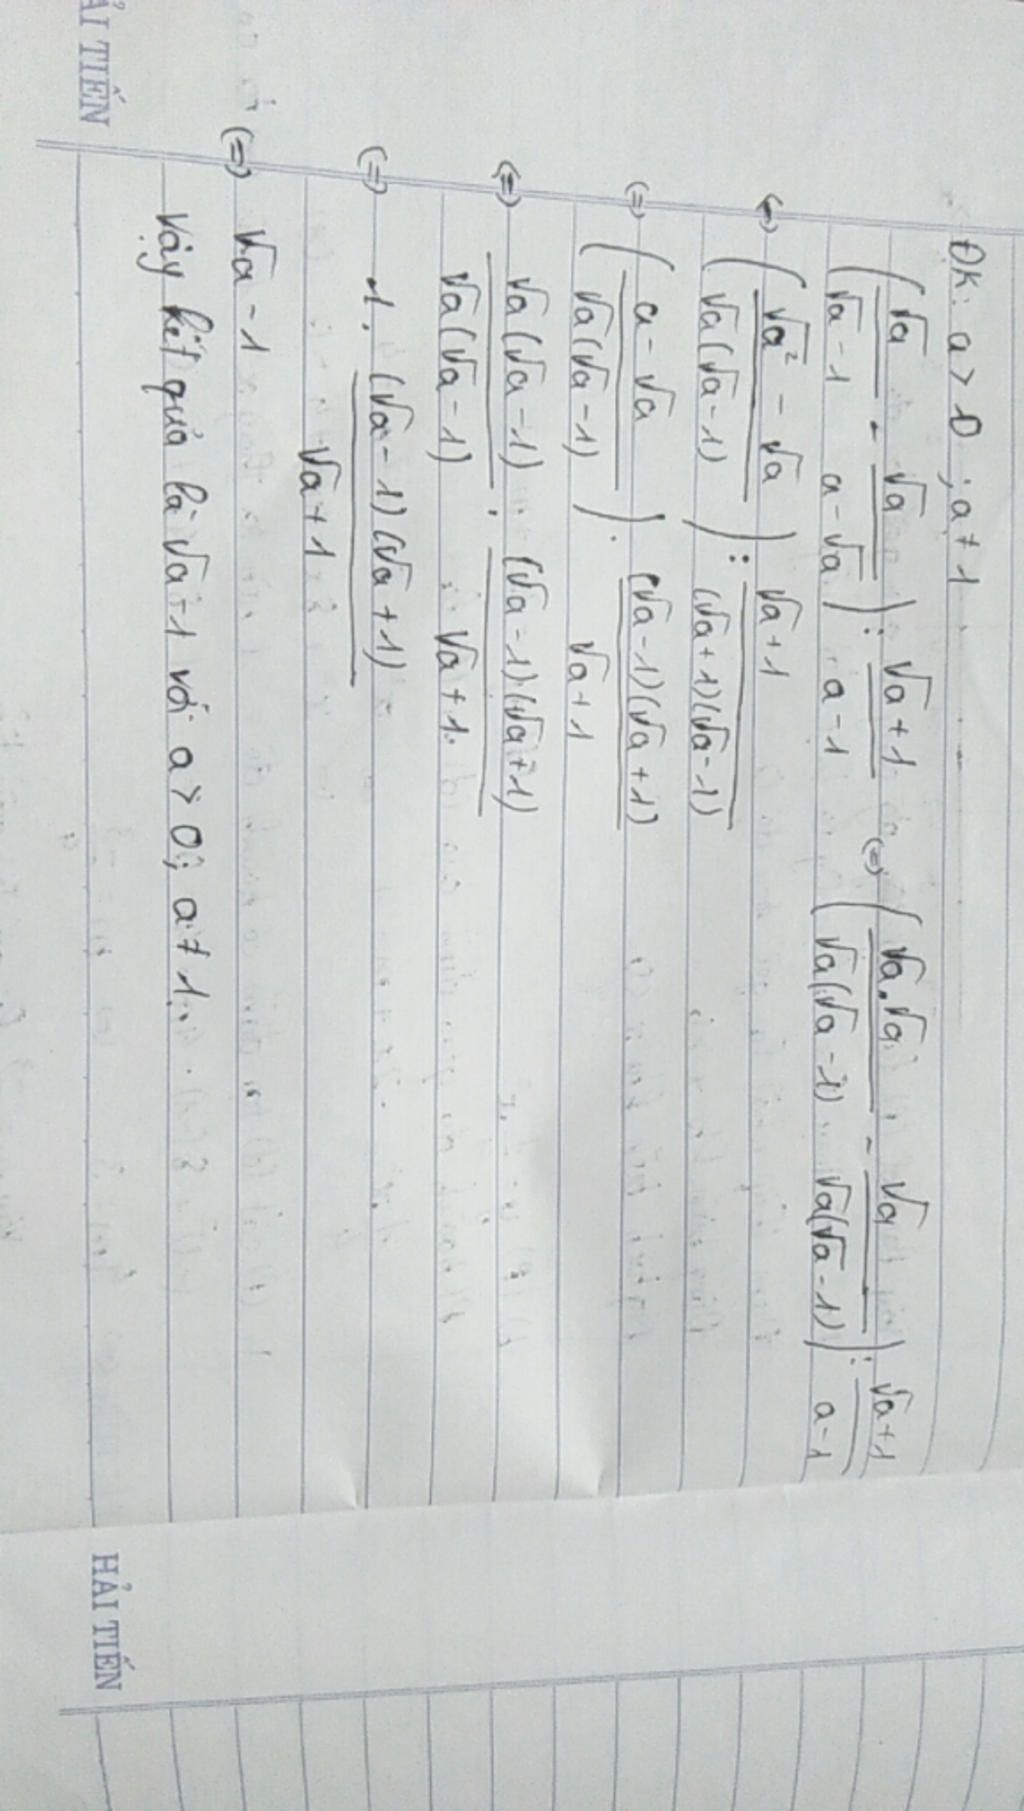 ĐK: a > 0 ; a ≠ 1
(√a/(√a - 1) - √a/(a - √a)) : (√a + 1)/(a - 1) (=) (√a.√a/(√a(√a - 1)) - √a/(√a(√a - 1))) : (√a + 1)/(a - 1)
(=) ((√a² - √a)/(√a(√a - 1))) : (√a + 1)/((√a + 1)(√a - 1))
(=) ((a - √a)/(√a(√a - 1))) . ((√a - 1)(√a + 1))/(√a + 1)
(=) (√a(√a - 1))/(√a(√a - 1)) . ((√a - 1)(√a + 1))/(√a + 1)
(=) 1 . ((√a - 1)(√a + 1))/(√a + 1)
(=) √a - 1
Vậy kết quả là √a - 1 với a > 0; a ≠ 1.
ẢI TIẾN
HẢI TIẾN